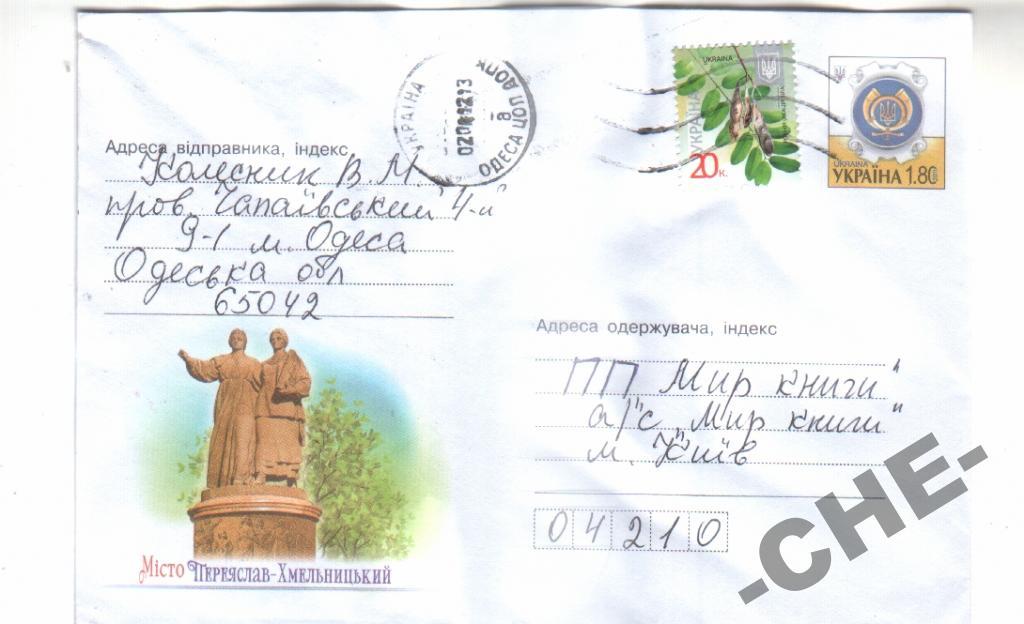 Адреса відправника, індекс
Колесник В.М.
пров. Чапаївський 4-й
9-1 м. Одеса
Одеська обл
65042
УКРАЇНА
ОДЕСА ЦОП ДОПХ
8
UKRAINA
УКРАЇНА
20к.
UKRAINA
УКРАЇНА 1.80
Адреса одержувача, індекс
ПП „Мир книги"
а/с „Мир книги"
м. Київ
04210
Місто Переяслав-Хмельницький
-CHE-